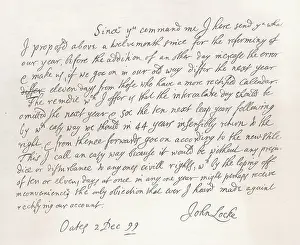 Since yr command me I here send you what
I propos'd above a twelvemonth since for the reforming of
our year, before the addition of an other day increase the error
& make us, if we goe on in our old way differ the next year
eleven days from those who have a more rectified Calendar.
The remedie wch I offer is that the intercalar day should be
omitted the next year & soe the ten next leap years following
by wch easy way we should in 44 years insensibly return to the
right & from thence forwards goe on according to the new stile.
This I call an easy way because it would be without any preju
dice or disturbance to any ones civill rights, wch by the lopping off
of ten or eleven days at once in any one year might perhaps receive
inconvenience the only objection that ever I heard made against
rectifying our account.
John Locke
Oates 2 Dec 99